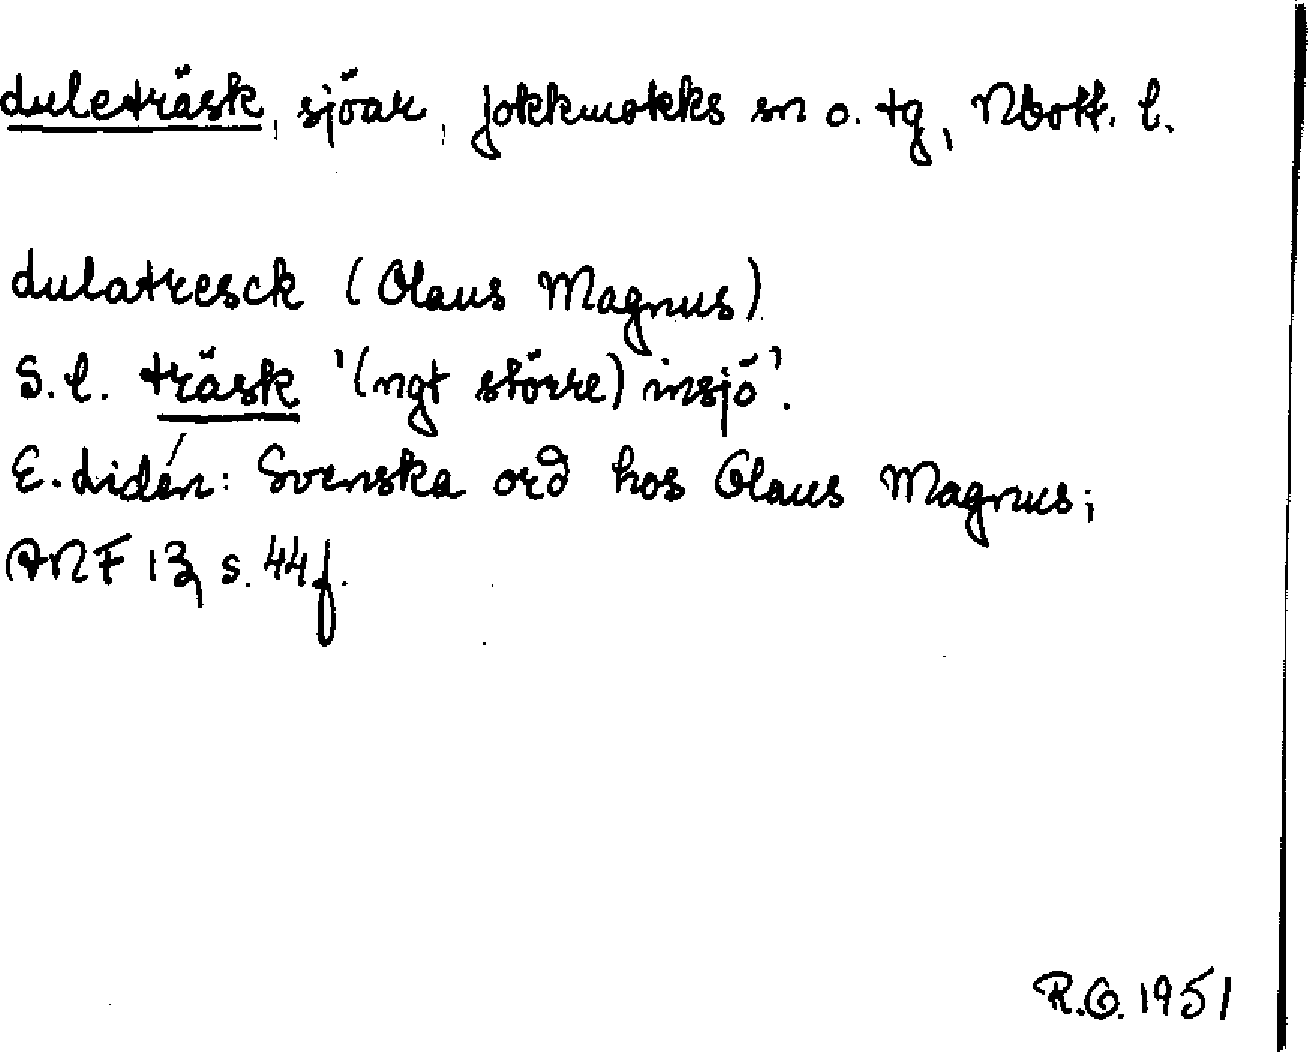 Luleträsk, sjöar, Jokkmokks sn o. tg, Nbott. l.
Lulatresck (Olaus Magnus)
S.l. träsk '(ngt större) insjö'.
E. Lidén: Svenska ord hos Olaus Magnus;
ANF 13, s. 44f.
R.O. 1951